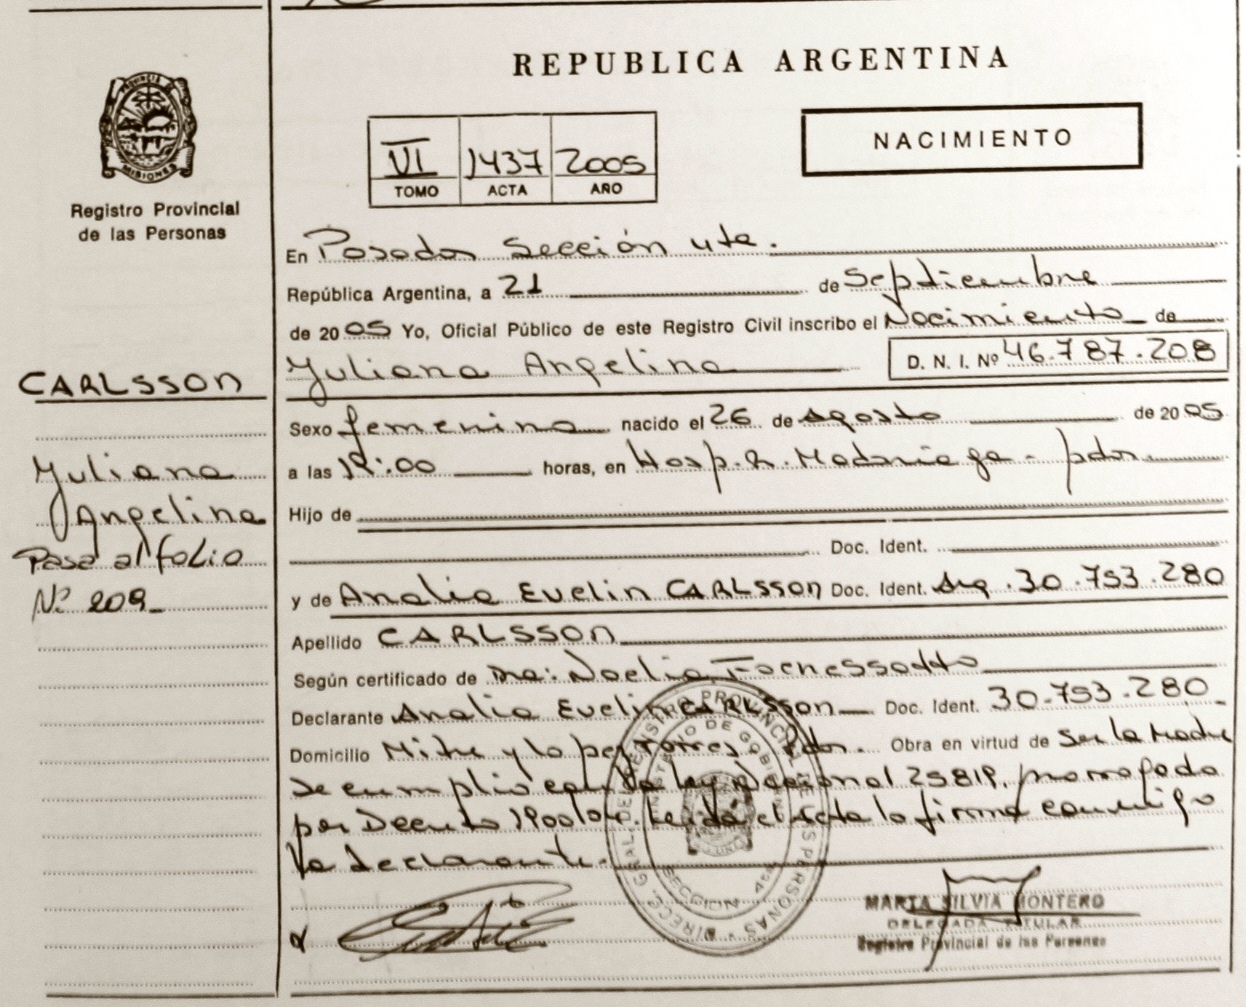 REPUBLICA ARGENTINA
PROVINCIA
MISIONES
Registro Provincial
de las Personas
VI 1437 2005
TOMO ACTA AÑO
NACIMIENTO
En Posadas Sección 4ta.
República Argentina, a 21 de Septiembre
de 2005 Yo, Oficial Público de este Registro Civil inscribo el Nacimiento de
Yuliana Angelina D. N. I. Nº 46.787.208
CARLSSON
Yuliana
Angelina
Pasa al folio
Nº 209
Sexo femenino nacido el 26 de Agosto de 2005
a las :00 horas, en Hosp. R. Madariaga - pdas.
Hijo de
Doc. Ident.
y de Analia Evelin CARLSSON Doc. Ident. Arg. 30.753.280
Apellido CARLSSON
Según certificado de Dra. Noelia
Declarante Analia Evelin CARLSSON Doc. Ident. 30.753.280
Domicilio Mitre y Lopez Torres Pdas. Obra en virtud de Ser la Madre
Se cumplio con la ley Nacional 25819, prorrogada
por Decreto 1900/04. Leída el Acta la firma conmigo
la declarante.
DIRECC. GRAL. DE REGISTRO PROVINCIAL DE LAS PERSONAS
MINISTERIO DE GOBIERNO
SECCION 4ta
MARTA SILVIA MONTERO
DELEGADA TITULAR
Registro Provincial de las Personas